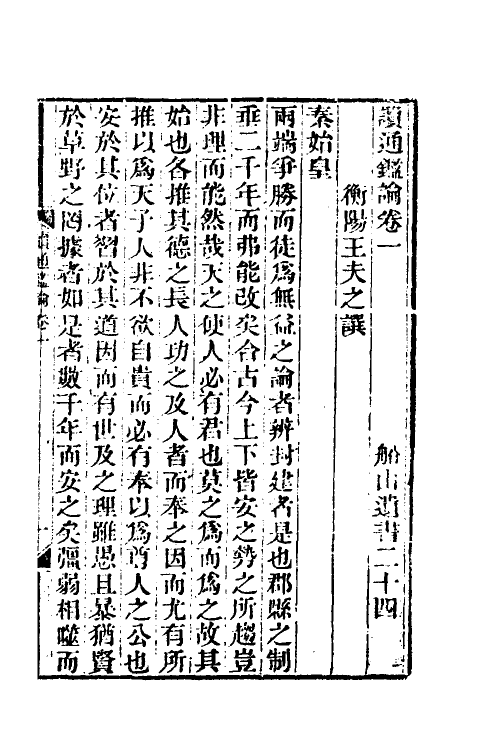 讀通鑑論卷一　船山遺書二十四
衡陽王夫之譔
秦始皇
兩端爭勝而徒爲無益之論者辨封建者是也郡縣之制
垂二千年而弗能改矣合古今上下皆安之勢之所趨豈
非理而能然哉天之使人必有君也莫之爲而爲之故其
始也各推其德之長人功之及人者而奉之因而尤有所
推以爲天子人非不欲自貴而必有奉以爲尊人之公也
安於其位者習於其道因而有世及之理雖愚且暴猶賢
於草野之罔據者如是者數千年而安之矣彊弱相噬而
讀通鑑論卷一
一